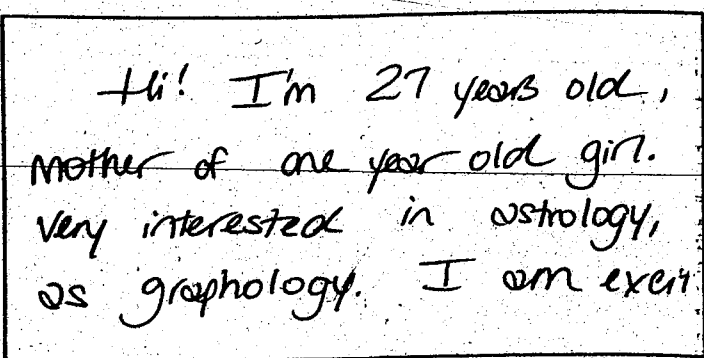 Hi! I'm 27 years old,
mother of one year old girl.
very interested in astrology,
as graphology. I am exci